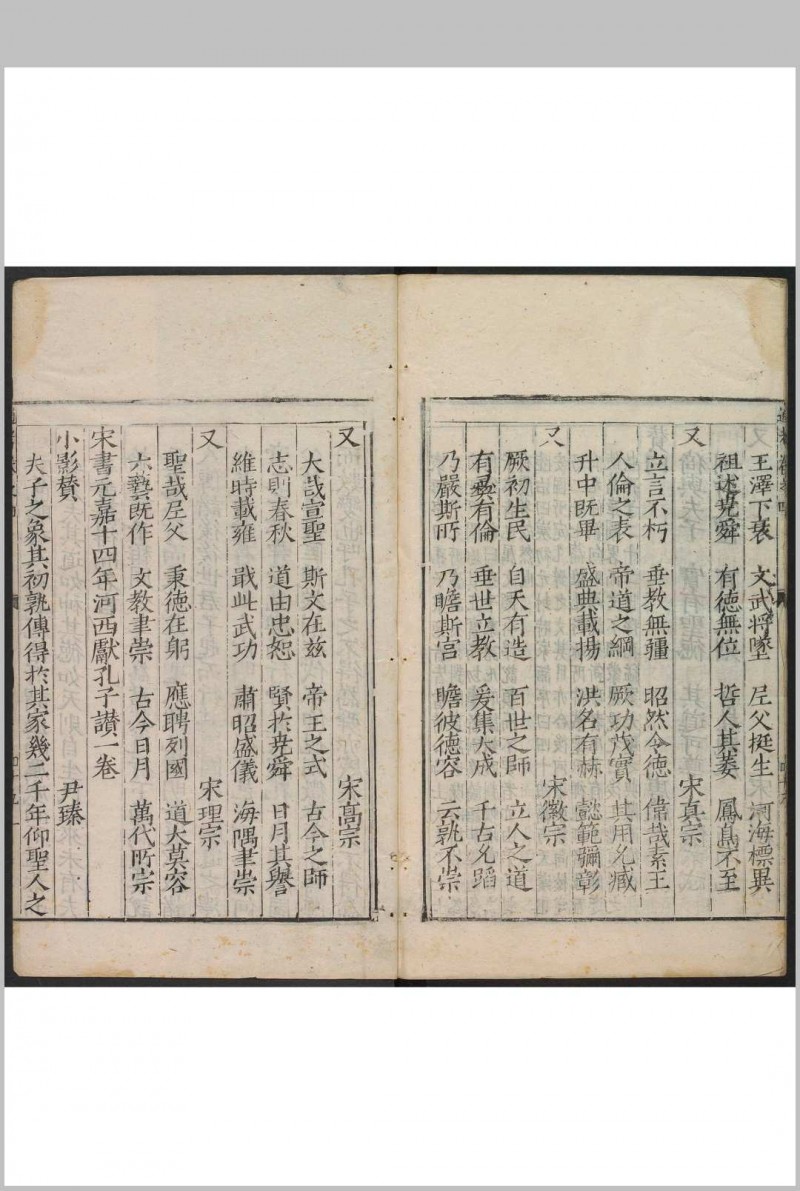 王澤下衰　文武將墜　尼父挺生　河海標異
祖述堯舜　有德無位　哲人其萎　鳳鳥不至
又　宋真宗
立言不朽　垂教無疆　昭然令德　偉哉素王
人倫之表　帝道之綱　厥功茂實　其用允臧
升中既畢　盛典載揚　洪名有赫　懿範彌彰
又　宋徽宗
厥初生民　自天有造　百世之師　立人之道
有彛有倫　垂世立教　爰集大成　千古允蹈
乃嚴斯所　乃瞻斯宮　瞻彼德容　云孰不崇
又　宋高宗
大哉宣聖　斯文在兹　帝王之式　古今之師
志則春秋　道由忠恕　賢於堯舜　日月其譽
維時載雍　戢此武功　肅昭盛儀　海隅聿崇
又　宋理宗
聖哉尼父　秉德在躬　應聘列國　道大莫容
六藝既作　文教聿崇　古今日月　萬代所宗
宋書元嘉十四年河西獻孔子讃一卷
小影賛　尹臻
夫子之象其初孰傳得於其家幾二千年仰聖人之